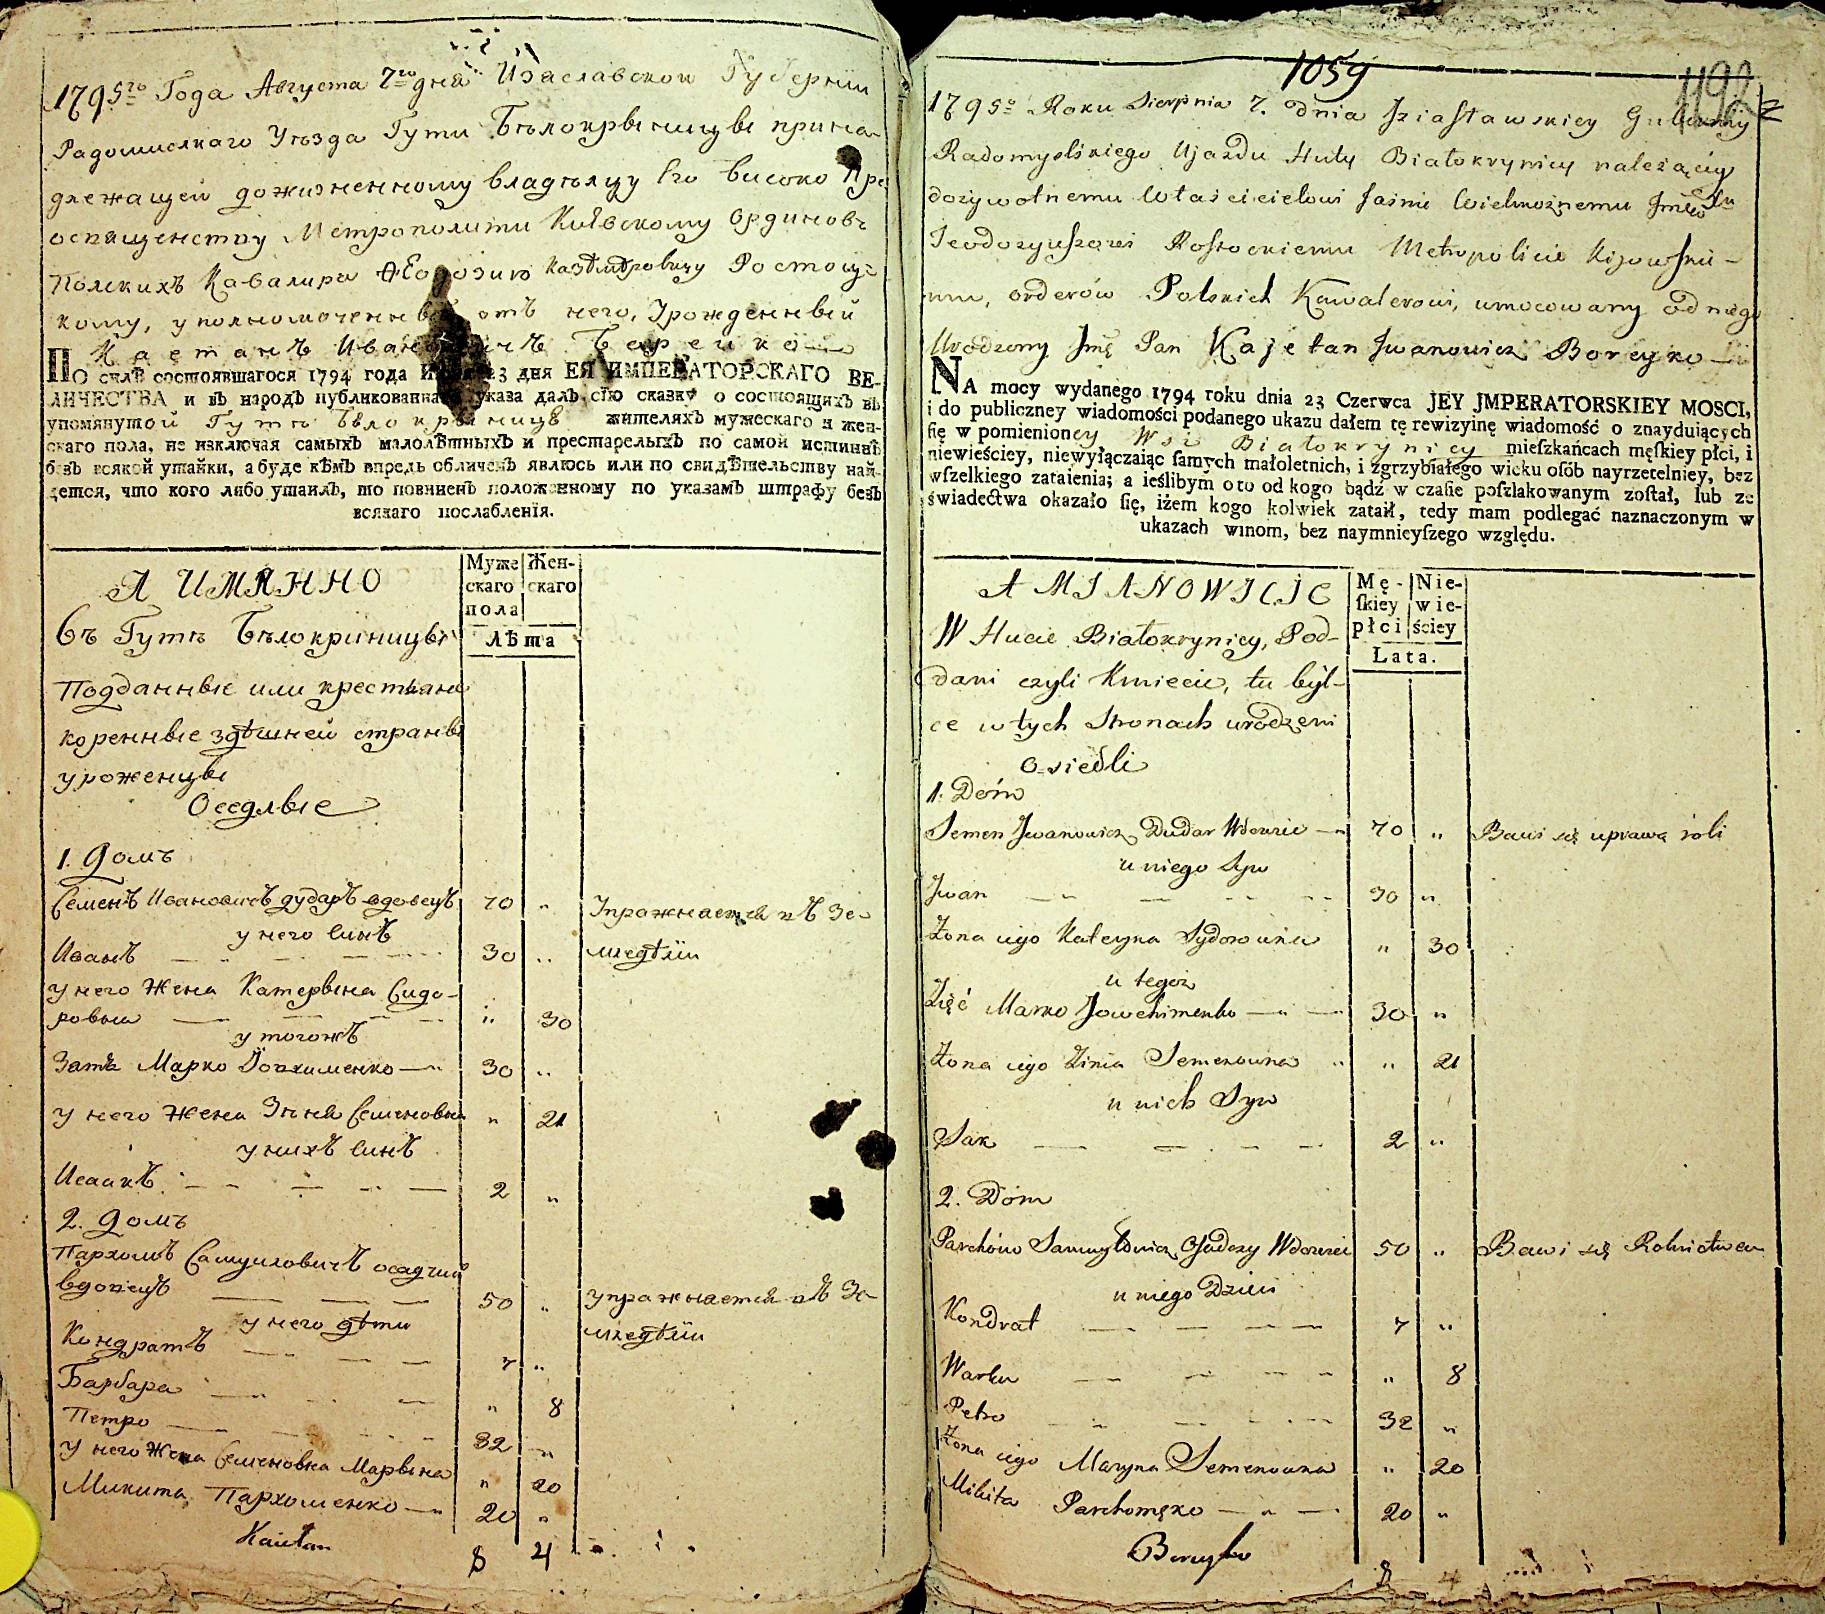 1795го Года Августа 7го дня Изаславской Губернии
Радомислкаго Уѣзда Гути Бѣлокриницы прина-
длежащей дожизненному владѣлцу Его Високо Пре
освященству Метрополити Киевскому Ординовъ
Полскихъ Кавалира Ѳеодозию Казѣмѣровичу Ростоц-
кому, уполномоченный отъ него, Урожденный
Каетанъ Ивановичъ Борейко
По силѣ состоявшагося 1794 года 23 дня ЕЯ ИМПЕРАТОРСКАГО ВЕ-
ЛИЧЕСТВА и въ народъ публикованнаго указа далъ сію сказку о состоящихъ въ
упомянутой Гутѣ Бѣлокриницѣ жителяхъ мужескаго и жен-
скаго пола, не изключая самыхъ малолѣтныхъ и престарелыхъ по самой истиннѣ
безъ всякой утайки, а буде кѣмъ впредь обличенъ явлюсь или по свидѣтельству най-
дется, что кого либо утаилъ, то повиненъ положенному по указамъ штрафу безъ
всякаго послабленія.
А ИМЯННО
Муже
скаго
пола
Жен-
скаго
Лѣта
Въ Гутѣ Бѣлокриницы
Подданные или крестьяне
коренные здѣшней страны
уроженцы
Оседлые
1. Домъ
Семенъ Ивановичъ Дударъ вдовецъ 70 „ Упражнается въ Зе-
у него Синъ
Иванъ 30 „ мледѣлии
у него Жена Катерына Сидо-
ровна „ 30
у тогожъ
Зать Марко Йовхименко 30 „
у него Жена Зѣня Семеновна „ 21
у нихъ Синъ
Исаакъ 2 „
2. Домъ
Пархомъ Самуиловичъ Осадчий
вдовецъ 50 „ упражнается въ Зе-
у него дѣти мледѣлии
Кондратъ 7 „
Барбара „ 8
Петро 32 „
у него Жена Семеновна Марына „ 20
Микита Пархоменко 20 „
Kaietan 8 4
1059
1795o Roku Sierpnia 7. dnia Iziasławskiey Gubernij
Radomyslskiego Ujazdu Huty Białokrynicy należącey
dożywotnemu Właścicielowi Jaśnie Wielmożnemu Jmść Xdu
Teodozyuszowi Rostockiemu Metropolicie Kijowski-
mu, orderów Polskich Kawalerowi, umocowany od niego
Urodzony Jmć Pan Kajetan Jwanowicz Boreyko
NA mocy wydanego 1794 roku dnia 23 Czerwca JEY JMPERATORSKIEY MOSCI,
i do publiczney wiadomości podanego ukazu dałem tę rewizyinę wiadomość o znayduiących
ſię w pomienioney Wsi Białokrynicy mieſzkańcach męſkiey płci, i
niewieściey, niewyłączaiąc ſamych małoletnich, i zgrzybiałego wieku osób nayrzetelniey, bez
wſzelkiego zataienia; a ieślibym o to od kogo bądź w czaſie poſzlakowanym zoſtał, lub ze
świadectwa okazało ſię, iżem kogo kolwiek zataił, tedy mam podlegać naznaczonym w
ukazach winom, bez naymnieyſzego względu.
A MIANOWICIE
Mę-
ſkiey
płci
Nie-
wie-
ściey
Lata.
W Hucie Białokrynicy, Pod-
dani czyli Kmiecie, tu byl-
ce w tych Stronach urodzeni
Osiedli
1. Dóm
Semen Jwanowicz Dudar Wdowiec 70 „ Bawi się uprawą roli
u niego Syn
Jwan 30 „
Żona iego Kateryna Sydorowna „ 30
u tegoż
Zięć Marko Jowchimenko 30 „
Żona iego Zinia Semenowna „ 21
u nich Syn
Sak 2 „
2. Dóm
Parchóm Samuyłowicz Osadczy Wdowiec 50 „ Bawi się Rolnictwem
u niego Dzieci
Kondrat 7 „
Warka „ 8
Petro 32 „
Żona iego Maryna Semenowna „ 20
Mikita Parchomęko 20 „
Boreyko 8 4